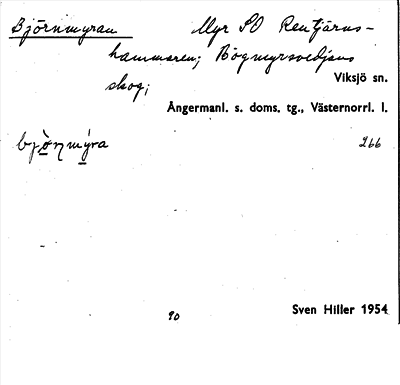 Björnmyran Myr SO Rentjärns-
hammaren; Bögmyrsvedjans
skog;
Viksjö sn.
Ångermanl. s. doms. tg., Västernorrl. l.
bjö̀ɳmýra 266
Sven Hiller 1954
90